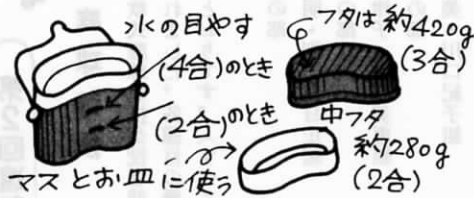 水の目やす
(4合)のとき
(2合)のとき
マスとお皿に使う
フタは約420g
(3合)
中フタ
約280g
(2合)